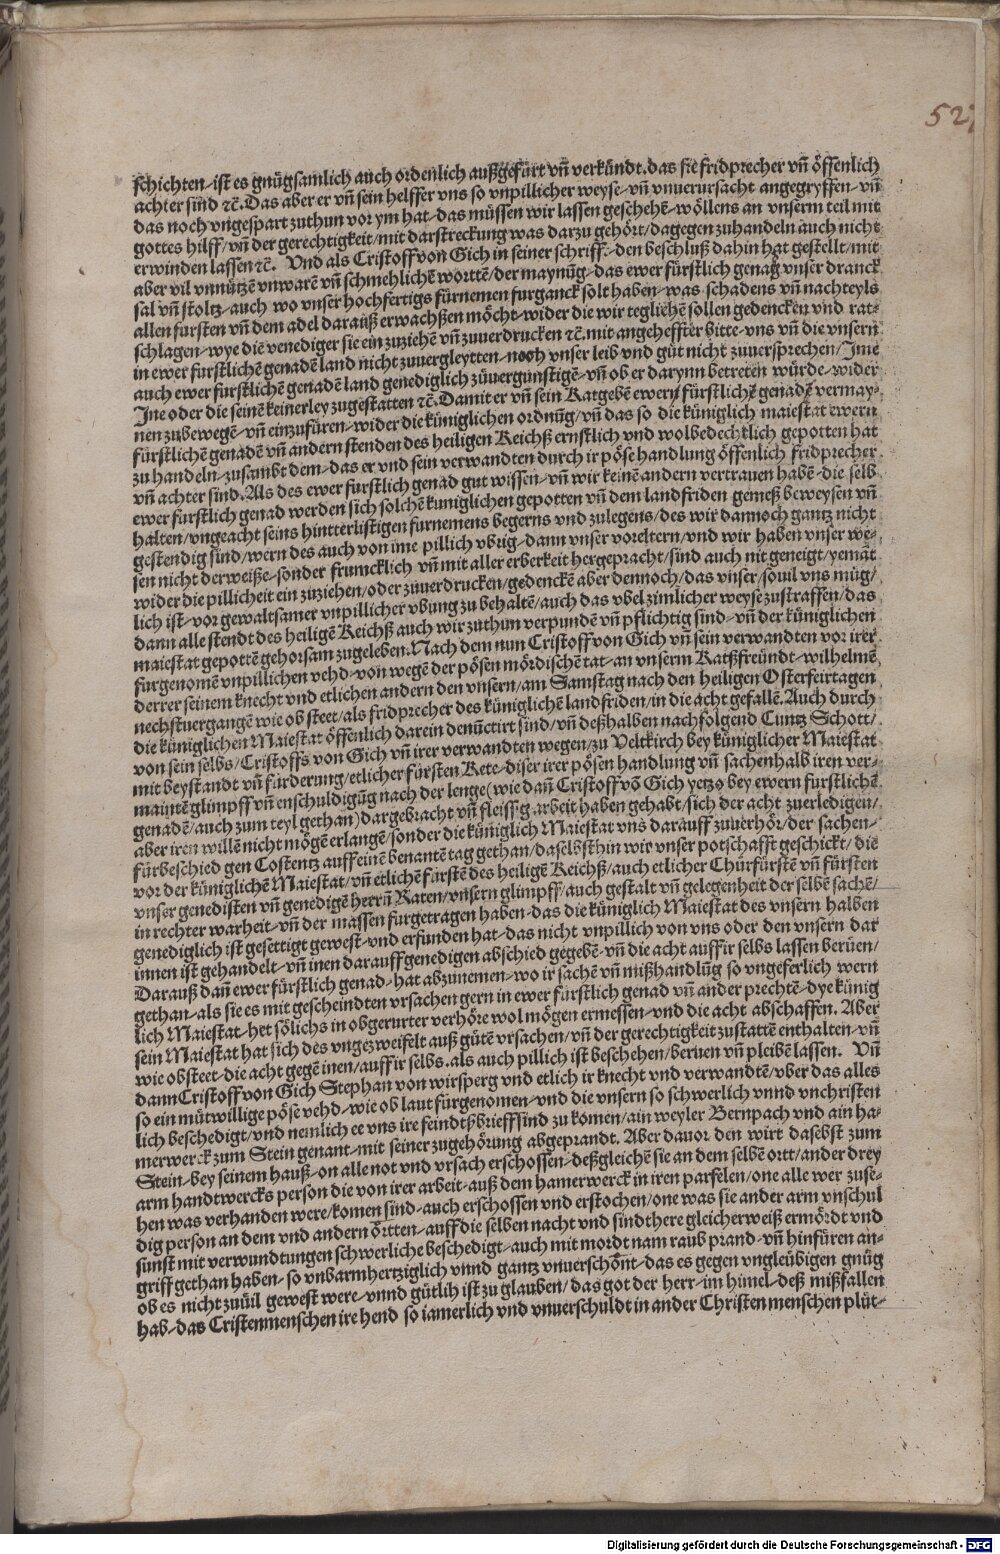 527
schichten/ist es gnůgsamlich auch ordenlich außgefürt vñ verkündt. das sie fridprecher vñ öffenlich
achter sind ꝛc̃. Das aber er vñ sein helffer vns so vnpillicher weyse/vñ vnuerursacht angegryffen/vñ
das noch vngespart zuthun vor ym hat/das müssen wir lassen geschehẽ/wöllens an vnserm teil mit
gottes hilff/vñ der gerechtigkeit/mit darstreckung was darzu gehört/dagegen zuhandeln auch nicht
erwinden lassen ꝛc̃. Vnd als Cristoff von Gich in seiner schrifft/den beschluß dahin hat gestellt/mit
aber vil vnnützẽ vnwarẽ vñ schmehlichẽ wortẽ/der maynũg/das ewer fürstlich genad vnser dranck
sal vñ stoltz/auch wo vnser hochfertigs fürnemen furganck solt haben/was schadens vñ nachteyls
allen fursten vñ dem adel darauß erwachßen möcht/wider die wir teglichẽ sollen gedencken vnd rat/
schlagen/wye die venediger sie ein zuziehẽ vñ zuuerdrucken ꝛc̃. mit angeheffter bitte/vns vñ die vnsern
in ewer furstlichẽ genadẽ land nicht zuuergleytten/noch vnser leib vnd gůt nicht zuuersprechen/Jme
auch ewer furstlichẽ genadẽ land genediglich züuergunstigẽ/vñ ob er darynn betreten würde/wider
Jne oder die seinẽ keinerley zugestatten ꝛc̃. Damit er vñ sein Ratgebẽ ewern fürstlichẽ genadẽ vermay/
nen zubewegẽ/vñ einzufüren/wider die küniglichen ordnũg/vñ das so die küniglich maiestat ewern
fürstlichẽ genadẽ vñ andern stenden des heiligen Reichß ernstlich vnd wolbedechtlich gepotten hat
zu handeln/zusambt dem/das er vnd sein verwandten durch ir pöse handlung öffenlich fridprecher
vñ achter sind. Als des ewer furstlich genad gut wissen/vñ wir keinẽ andern vertrauen habẽ/die selb
ewer furstlich genad werden sich solchẽ kuniglichen gepotten vñ dem landfriden gemeß beweysen vñ
halten/vngeacht seins hintterlistigen furnemens begerns vnd zulegens/des wir dannoch gantz nicht
gestendig sind/wern des auch von ime pillich vbrig/dann vnser voreltern/vnd wir haben vnser we/
sen nicht der weiße/sonder frumcklich vñ mit aller erberkeit hergepracht/sind auch nit geneigt/yemãt
wider die pillicheit ein zuziehen/oder zuuerdrucken/gedenckẽ aber dennoch/das vnser/souil vns müg/
lich ist/vor gewaltsamer vnpillicher vbung zu behaltẽ/auch das vbel zimlicher weyse zustraffen/das
dann alle stendt des heiligẽ Reichß auch wir zuthun verpundẽ vñ pflichtig sind/vñ der küniglichen
maiestat gepottẽ gehorsam zugeleben. Nach dem nun Cristoff von Gich vñ sein verwandten vor irer
furgenomẽ vnpillichen vehd/von wegẽ der pösen mördischẽ tat/an vnserm Ratßfreündt/wilhelmẽ
derrer seinem knecht vnd etlichen andern den vnsern/am Samstag nach den heiligen Osterfeirtagen
nechstuergangẽ wie ob steet/als fridprecher des küniglichẽ landfriden/in die acht gefallẽ. Auch durch
die küniglichen Maiestat öffenlich darein denũctirt sind/vñ deßhalben nachfolgend Cuntz Schott/
von sein selbs/Cristoffs von Gich vñ irer verwandten wegen/zu Veltkirch bey küniglicher Maiestat
mit beystandt vñ fürderung/etlicher fürsten Rete/diser irer pösen handlung vñ sachenhalb iren ver/
maintẽ glimpff vñ enschuldigũg nach der lenge (wie dañ Cristoff võ Gich yetzo bey ewern furstlichẽ
genadẽ/auch zum teyl gethan) dargebracht vñ fleissig arbeit haben gehabt/sich der acht zuerledigen/
aber iren willẽ nicht mögẽ erlangẽ/sonder die küniglich Maiestat vns darauff zuuerhör/der sachen/
fürbeschied gen Costentz auff einẽ benantẽ tag gethan/daselbsthin wir vnser potschafft geschickt/die
vor der küniglichẽ Maiestat/vñ etlichẽ fürstẽ des heiligẽ Reichß/auch etlicher Chürfürstẽ vñ fürsten
vnser genedisten vñ genedigẽ herrñ Raten/vnsern glimpff/auch gestalt vñ gelegenheit der selbẽ sachẽ/
in rechter warheit/vñ der massen furgetragen haben/das die küniglich Maiestat des vnsern halben
genediglich ist gesettigt gewest/vnd erfunden hat/das nicht vnpillich von vns oder den vnsern dar
innen ist gehandelt/vñ inen darauff genedigen abschied gegebẽ/vñ die acht auff ir selbs lassen berüen/
Darauß dañ ewer fürstlich genad/hat abzunemen/wo ir sachẽ vñ mißhandlũg so vngeferlich wern
gethan/als sie es mit gescheindten vrsachen gern in ewer fürstlich genad vñ ander prechtẽ/dye künig
lich Maiestat/het sölichs in obgerurter verhöre wol mögen ermessen/vnd die acht abschaffen. Aber
sein Maiestat hat sich des vngezweifelt auß gütẽ vrsachen/vñ der gerechtigkeit zustattẽ enthalten/vñ
wie obsteet/die acht gegẽ inen/auff ir selbs. als auch pillich ist beschehen/beruen vñ pleibẽ lassen. Vñ
dann Cristoff von Gich Stephan von wirsperg vnd etlich ir knecht vnd verwandtẽ/vber das alles
so ein mütwillige pöse vehd/wie ob laut fürgenomen/vnd die vnsern so schwerlich vnnd vnchristen
lich beschedigt/vnd nemlich ee vns ire feindtßbrieff sind zu komen/ain weyler Bernpach vnd ain ha/
merwerck zum Stein genant/mit seiner zugehörung abgeprandt. Aber dauor den wirt dasebst zum
Stein/bey seinem hauß/on alle not vnd vrsach erschossen/deßgleichẽ sie an dem selbẽ ortt/ander drey
arm handtwercks person die von irer arbeit/auß dem hamerwerck in iren parfelen/one alle wer zuse/
hen was verhanden were/komen sind/auch erschossen vnd erstochen/one was sie ander arm vnschul
dig person an dem vnd andern örtten/auff die selben nacht vnd sindthere gleicherweiß ermördt vnd
sunst mit verwundtungen schwerliche beschedigt/auch mit mordt nam raub prand/vñ hinfüren an/
griff gethan haben/so vnbarmhertziglich vnnd gantz vnuerschönt/das es gegen vngleübigen gnüg
ob es nicht zuuil gewest were/vnnd gütlih ist zu glauben/das got der herr/im himel/deß mißfallen
hab/das Cristenmenschen ire hend so iamerlich vnd vnuerschuldt in ander Christen menschen plüt/
Digitalisierung gefördert durch die Deutsche Forschungsgemeinschaft - DFG